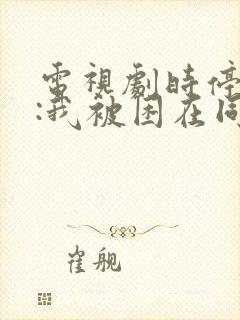 電視劇時停
:我被困在同
崔舰